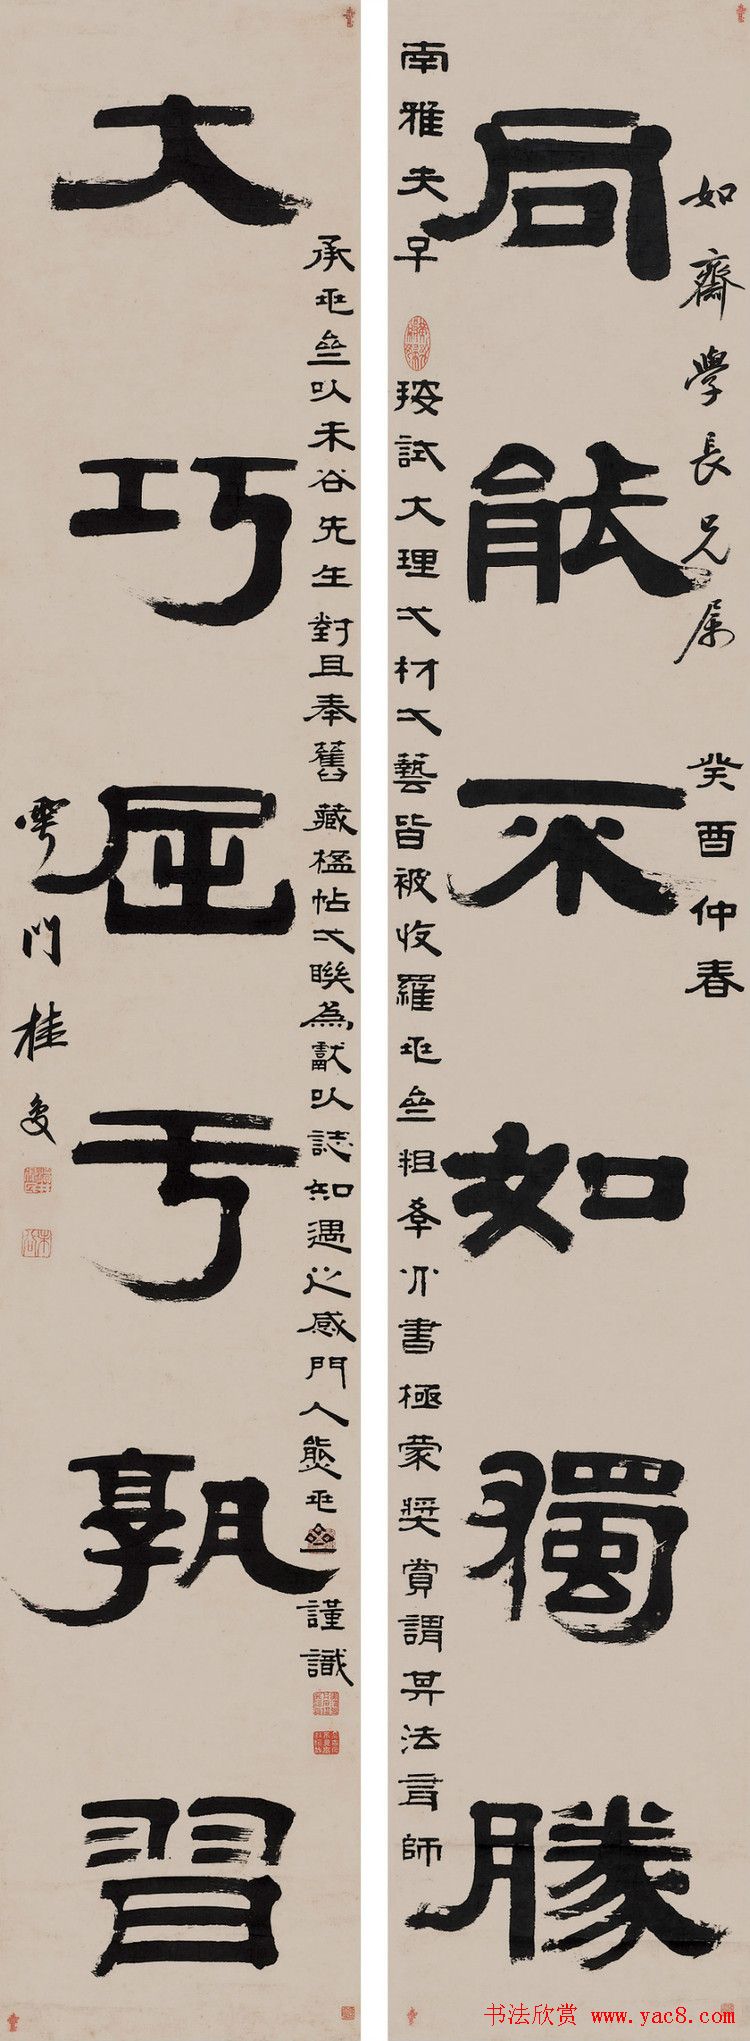 如齋學長兄屬 癸酉仲春
同能不如獨勝
南雅夫子 按試大理弌材弌藝皆被收羅丕粗學八分書極蒙獎賞謂其法有師
承丕以未谷先生對且奉舊藏楹帖弌聯為獻以誌知遇之感門人熊丕謹識
大巧屈亐孰習
雩門桂馥
书法欣赏 www.yac8.com